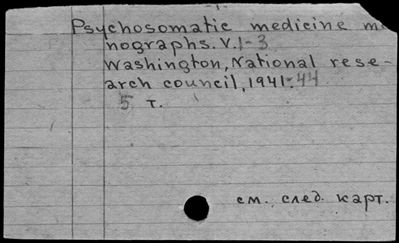 -1-
Psychosomatic medicine mo
nographs. V.1-3
Washington, National rese-
arch council, 1941-44
5 т.
см. след. карт.